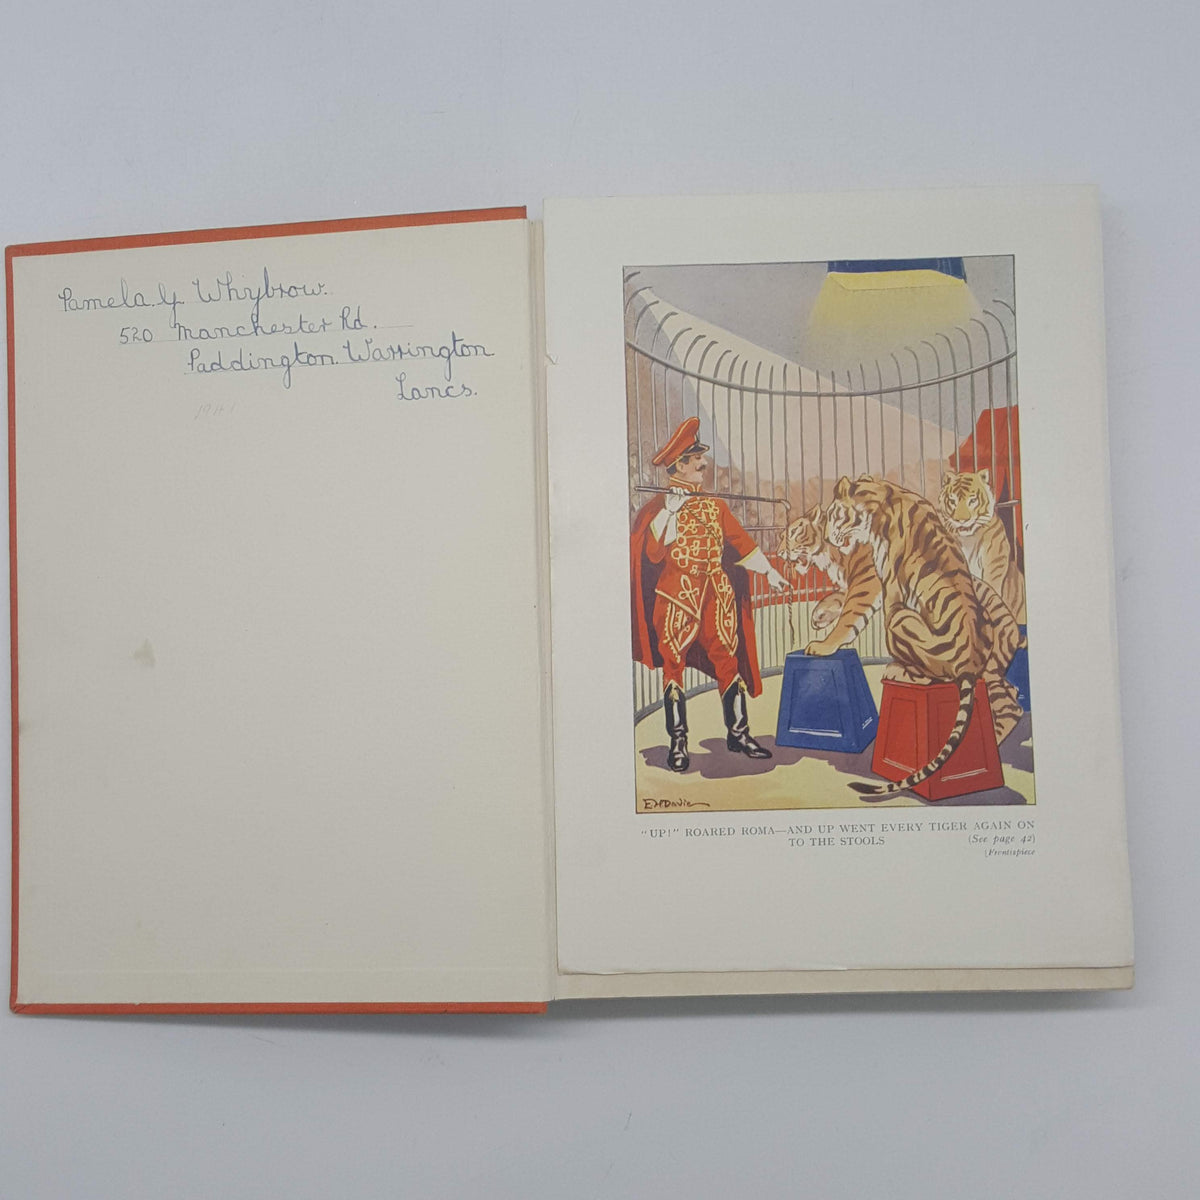 Pamela. Y. Whybrow.
520 Manchester Rd.
Paddington. Warrington
Lancs.
E H Davie
"UP!" ROARED ROMA—AND UP WENT EVERY TIGER AGAIN ON
TO THE STOOLS (See page 42)
[Frontispiece